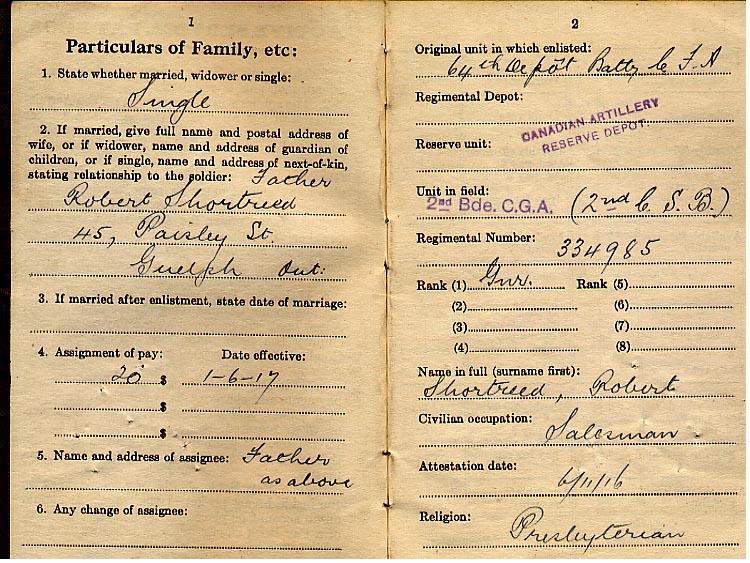 1
Particulars of Family, etc:
1. State whether married, widower or single:
Single
2. If married, give full name and postal address of
wife, or if widower, name and address of guardian of
children, or if single, name and address of next-of-kin,
stating relationship to the soldier: Father
Robert Shortreed
45, Paisley St.
Guelph Ont:
3. If married after enlistment, state date of marriage:
4. Assignment of pay: Date effective:
20 $ 1-6-17
$
$
5. Name and address of assignee: Father
as above
6. Any change of assignee:
2
Original unit in which enlisted:
64th Depot Batty C F A
Regimental Depot:
CANADIAN ARTILLERY
RESERVE DEPOT.
Reserve unit:
Unit in field:
2nd Bde. C.G.A. (2nd C. S. B.)
Regimental Number:
334985
Rank (1) Gnr. Rank (5)
(2) (6)
(3) (7)
(4) (8)
Name in full (surname first):
Shortreed, Robert
Civilian occupation:
Salesman
Attestation date:
6/11/16
Religion:
Presbyterian